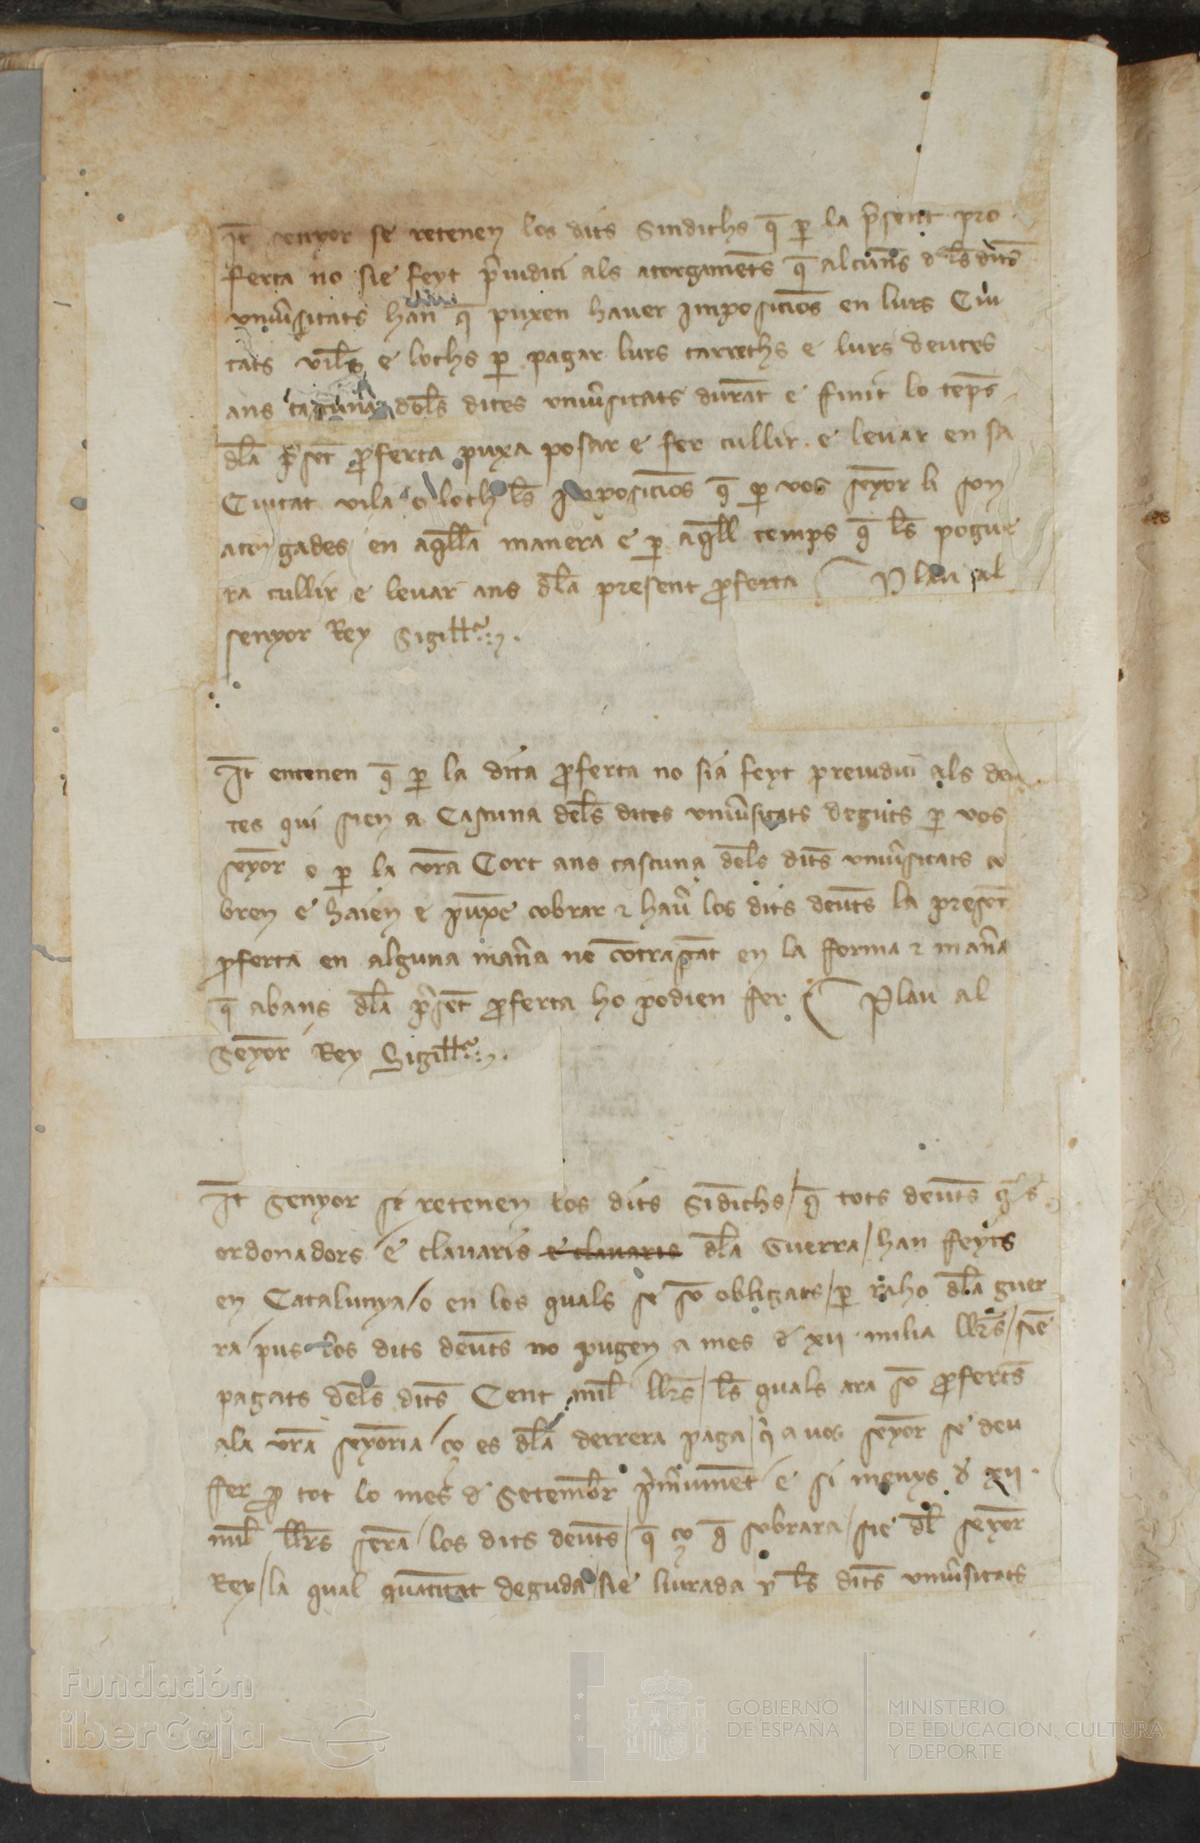 It senyor se retenen los dits Sindichs q̄ p̱ la p̄sent pro
ferta no sie feyt p̄iudici als atorgamēts q̄ alcūns dels dits
uniũsitats han q̄ puxen hauer Imposiciōs en lurs Ciu
tats viles e lochs p̱ pagar lurs carrechs e lurs deutes
ans cascuna deles dites uniũsitats durāt e finit lo tēps
dla p̄sēt p̄ferta puxa posar e fer cullir e leuar en sa
Ciutat vila o loch les Imposiciōs q̄ p̱ vos seyōr li son
atorgades en aq̄lla manera e p̱ aq̄ll temps q̄ les pogue
ra cullir e leuar ans dla present p̄ferta Plau al
senyor Rey Sigill
It entenen q̄ p̱ la dita p̄ferta no sia feyt preiudici als deu
tes qui sien a Cascuna deles dites uniũsitats deguts p̱ vos
seyōr o p̱ la vrā Cort ans cascuna dels dits uniũsitats co
bren e haien e puxē cobrar e hau̾ los dits deutēs la presēt
p̄ferta en alguna maña no cōtrastāt en la forma e mañ̄a
q̄ abans dla p̄sēt p̄ferta ho podien fer Plau al
Seyōr Rey Sigill
It Senyor se retenen los dits Sīdichs / q̄ tots deutēs q̄ls
ordonadors e clauaris e clauaris dla Guerra / han feyts
en Catalunya / o en los quals se sō obligats / p̱ raho dla guer
ra / pus los dits deutēs no pugen a mes d xii milia llr̄s / siē
pagats dels dits Cent mil llr̄s / les quals ara sō p̄ferts
ala vrā seyōria / ço es dla derrera paga / q̄ a vos seyōr se deu
fer p̱ tot lo mes d Setembr̄ p̄m̄ument e si menys d xii
mil llr̄s serā / los dits deutēs / q̄ ço q̄ sobrara / sie dl seyōr
Rey / la qual quātitat deguda / sie liurada p̱ les dits uniũsitats
Fundación
iberCaja
GOBIERNO
DE ESPAÑA
MINISTERIO
DE EDUCACIÓN, CULTURA
Y DEPORTE